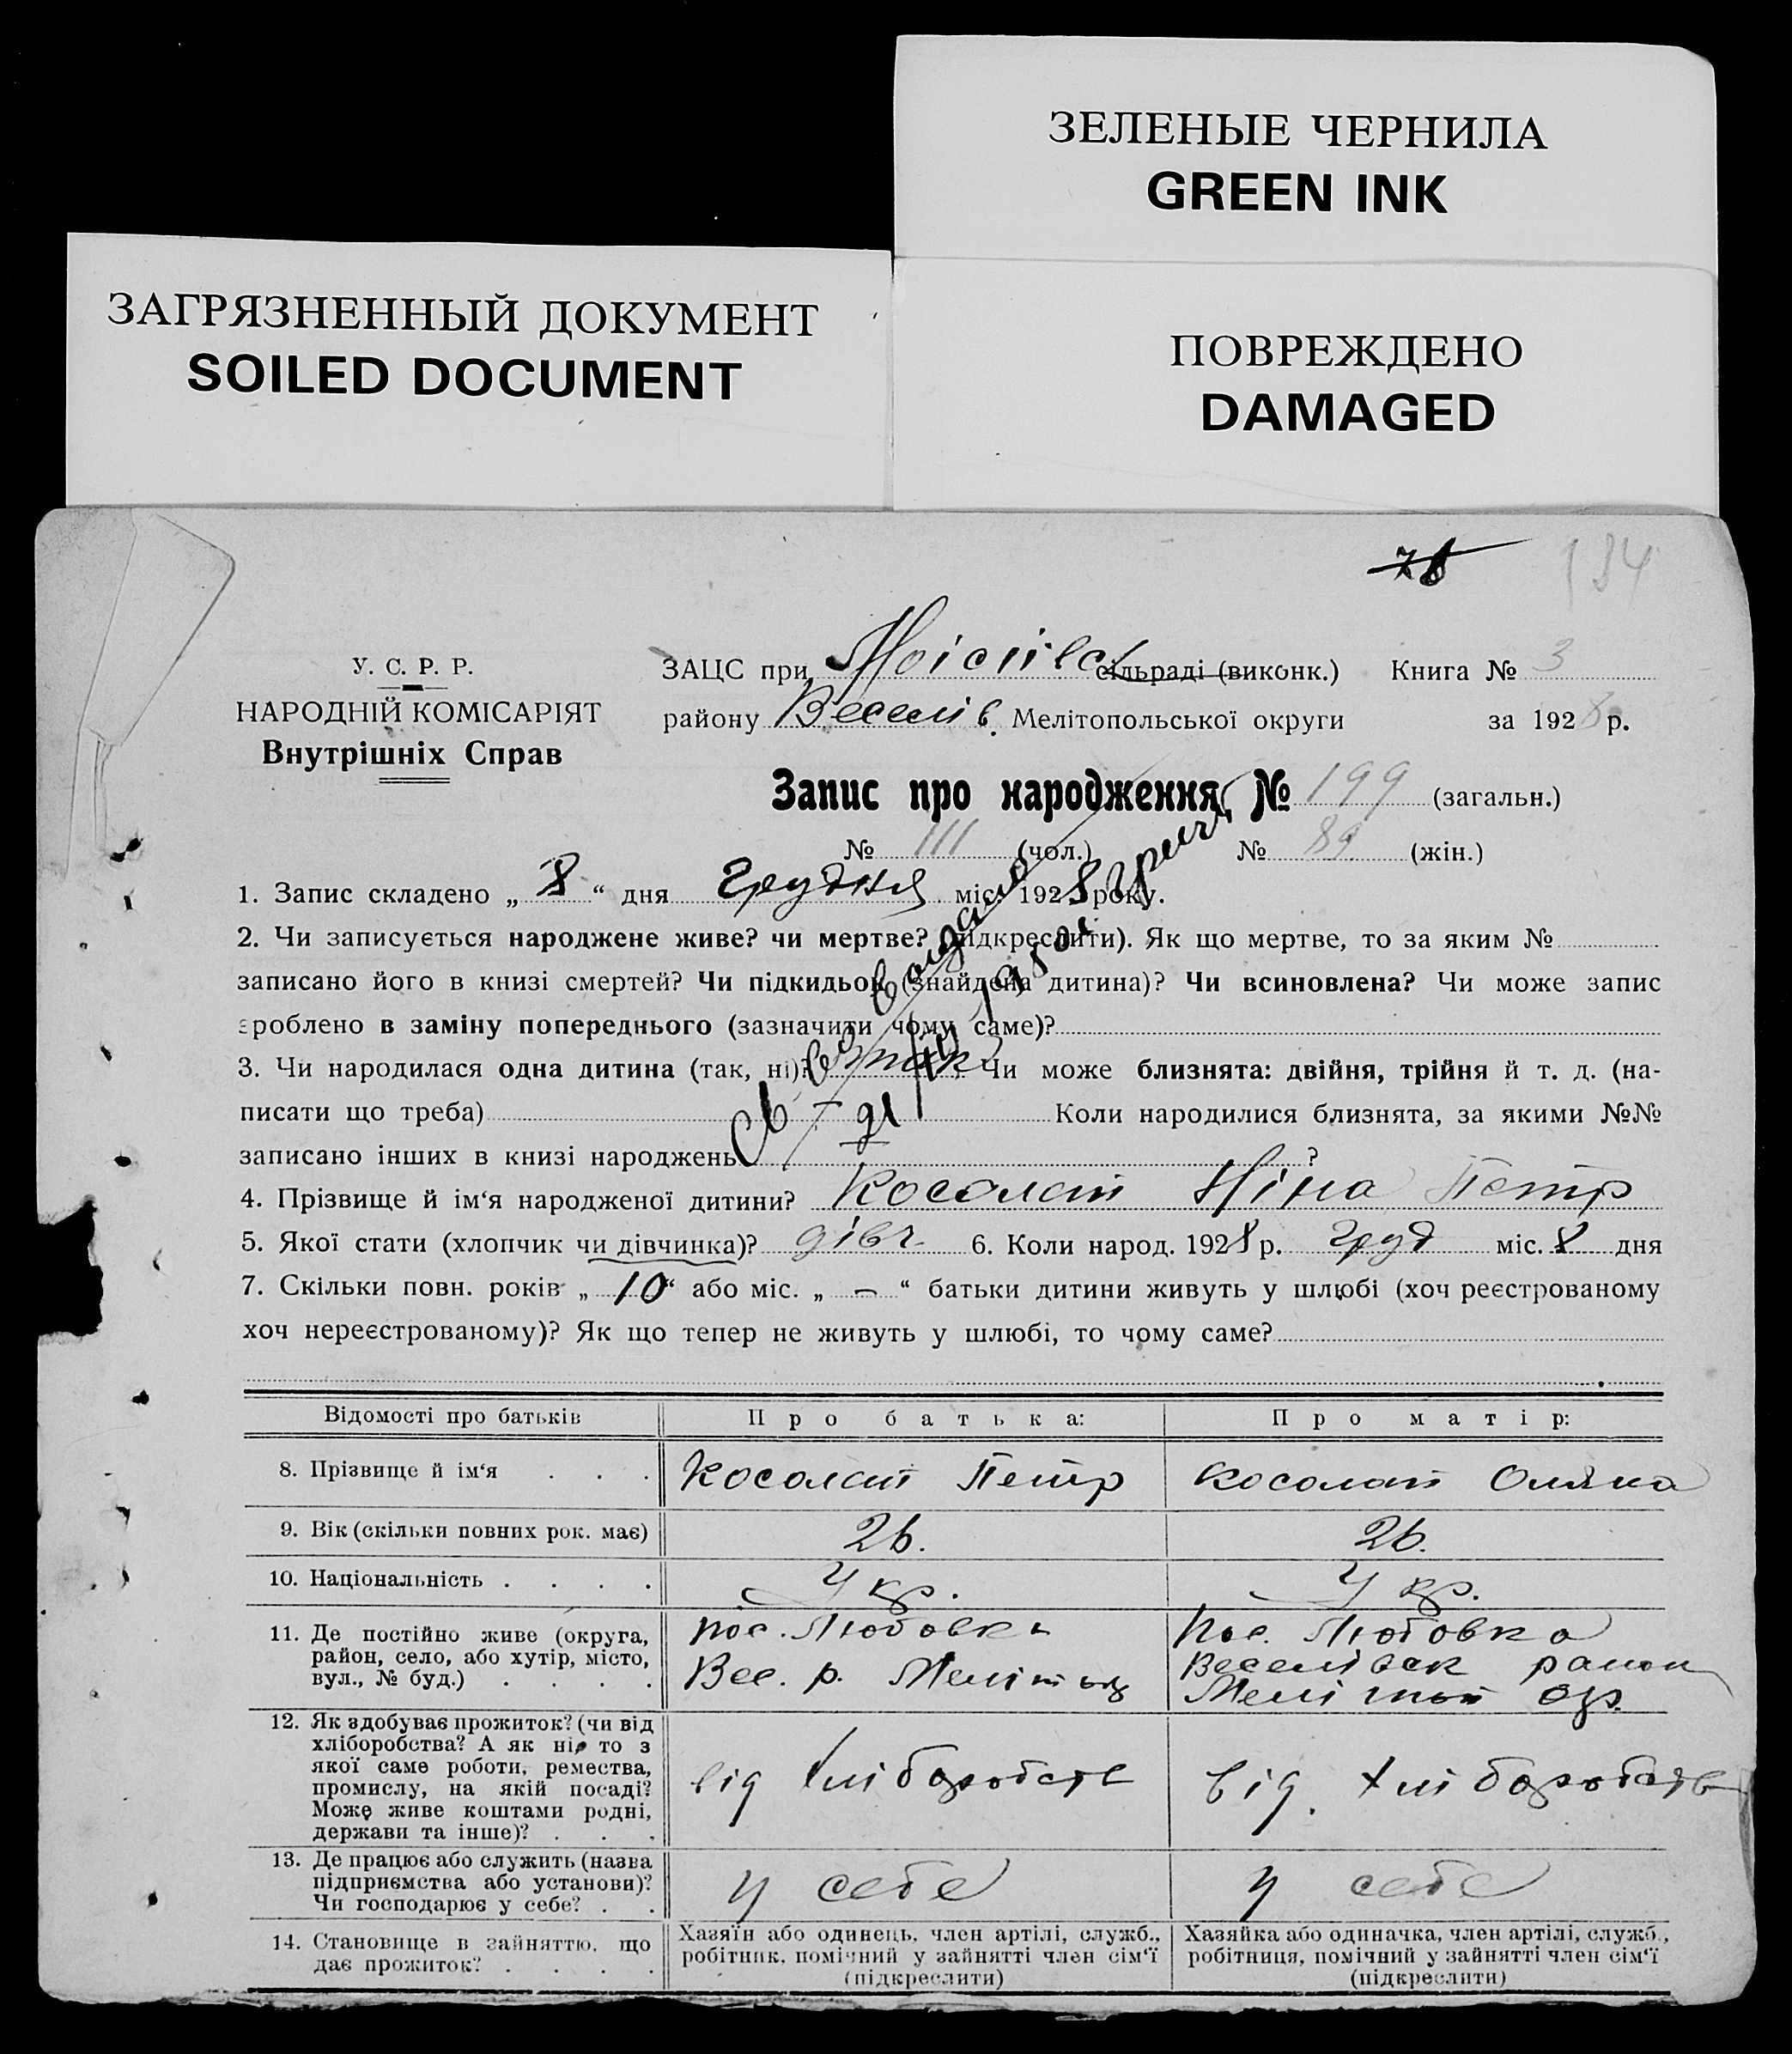 ЗЕЛЕНЫЕ ЧЕРНИЛА
GREEN INK
ЗАГРЯЗНЕННЫЙ ДОКУМЕНТ
SOILED DOCUMENT
ПОВРЕЖДЕНО
DAMAGED
78 134
У. С. Р. Р.
НАРОДНІЙ КОМІСАРІЯТ
Внутрішніх Справ
ЗАЦС при сільраді (виконк.) Книга № 3
району Веселів. Мелітопольської округи за 1928 р.
Запис про народження, № 199 (загальн.)
№ 111 (чол.) № 89 (жін.)
1. Запис складено „ 8 “ дня Грудня міс. 1928 року.
2. Чи записується народжене живе? чи мертве? (підкреслити). Як що мертве, то за яким №
записано його в книзі смертей? Чи підкидьок (знайдена дитина)? Чи всиновлена? Чи може запис
зроблено в заміну попереднього (зазначити чому саме)?
3. Чи народилася одна дитина (так, ні)? так Чи може близнята: двійня, трійня й т. д. (на-
писати що треба) Коли народилися близнята, за якими №№
записано інших в книзі народжень ?
4. Прізвище й ім‘я народженої дитини? Косолап Ніна Петр
5. Якої стати (хлопчик чи дівчинка)? дівч. 6. Коли народ. 1928 р. Груд міс. 8 дня
7. Скільки повн. років „ 10 “ або міс. „ — “ батьки дитини живуть у шлюбі (хоч реєстрованому
хоч нереєстрованому)? Як що тепер не живуть у шлюбі, то чому саме?
Відомості про батьків Про батька: Про матір:
8. Прізвище й ім‘я . . . Косолап Петр Косолап Оляна
9. Вік (скільки повних рок. має) 26. 26.
10. Національність . . . . Укр. Укр.
11. Де постійно живе (округа,
район, село, або хутір, місто,
вул., № буд.) . . . .
пос. Любовка
Вес. р.
Пос. Любовка
Веселівск район
12. Як здобуває прожиток? (чи від
хліборобства? А як ні, то з
якої саме роботи, ремества,
промислу, на якій посаді?
Може живе коштами родні,
держави та інше)? . . .
від хліборобств
від. хліборобств
13. Де працює або служить (назва
підприємства або установи)?
Чи господарює у себе? . .
у себе
у себе
14. Становище в зайняттю, що
дає прожиток? . . . .
Хазяїн або одинець, член артілі, служб.,
робітник, помічний у зайнятті член сім‘ї
(підкреслити)
Хазяйка або одиначка, член артілі, служб.,
робітниця, помічний у зайнятті член сім‘ї
(підкреслити)